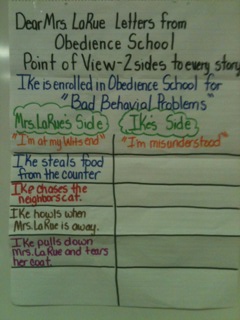 Dear Mrs. LaRue Letters from
Obedience School
Point of View-2 sides to every story
Ike is enrolled in Obedience School for
"Bad Behavial Problems"
Mrs. LaRue's Side
Ike's Side
"I'm at my wits end"
"I'm misunderstood"
Ike steals food
from the counter
Ike chases the
neighbors cat.
Ike howls when
Mrs. LaRue is away.
Ike pulls down
Mrs. LaRue and tears
her coat.